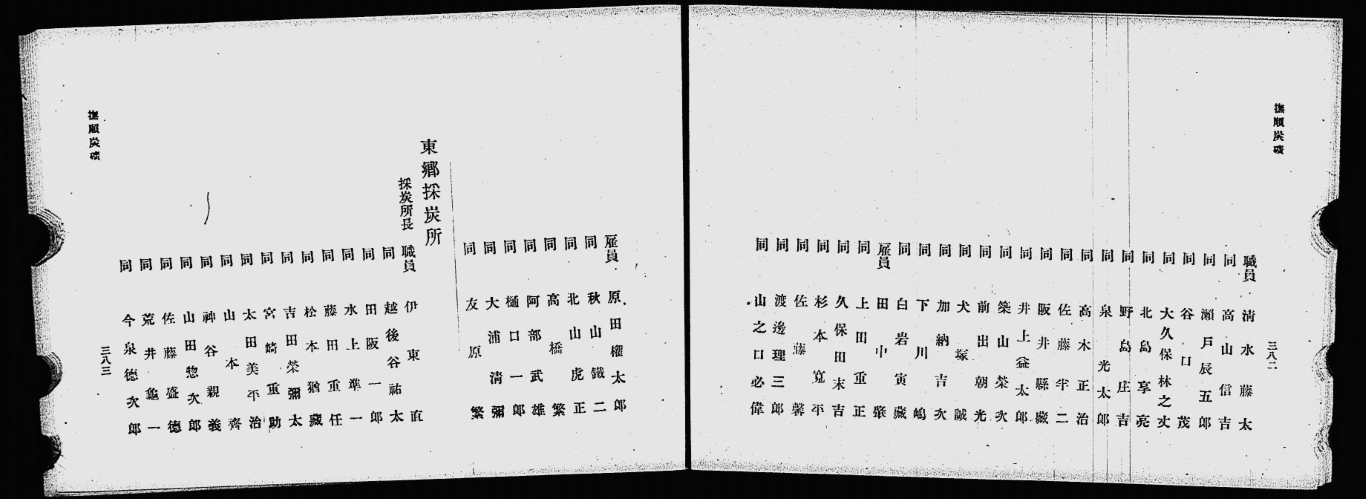 撫順炭礦
三八二
職員 清水藤太
同 高山信吉
同 瀬戸辰五郎
同 谷口茂
同 大久保林之丈
同 北島享亮
同 野島庄吉
同 泉光太郎
同 高木正治
同 佐藤半二
同 阪井縣藏
同 井上益太郎
同 築山榮次
同 前出朝光
同 犬塚誠
同 加納吉次
同 下川嶋
同 白岩寅藏
雇員 田中肇
同 上田重正
同 久保田末吉
同 杉本寬平
同 佐藤馨
同 渡邊理三郎
同 山之口必偉
雇員 原田權太郎
同 秋山鐵二
同 北山虎正
同 高橋繁
同 阿部武雄
同 樋口一郎
同 大浦清彌
同 友原繁
東鄉採炭所
採炭所長
職員 伊東直
同 越後谷祐太
同 田阪一郎
同 水上準一
同 藤田重任
同 松本猶藏
同 吉田榮彌太
同 宮崎重助
同 太田美平治
同 山本齊
同 神谷親義
同 山田惣次郎
同 佐藤盛德
同 荒井龜一
同 今泉德次郎
撫順炭礦
三八三